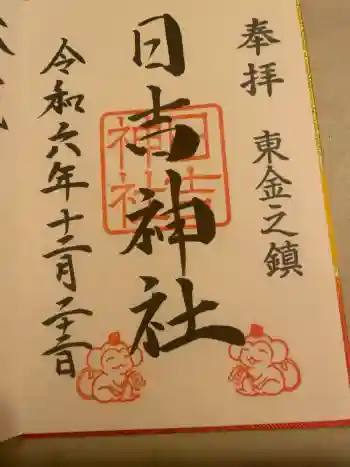 奉拝
東金之鎮
日吉神社
日吉
神社
令和六年十二月二十二日